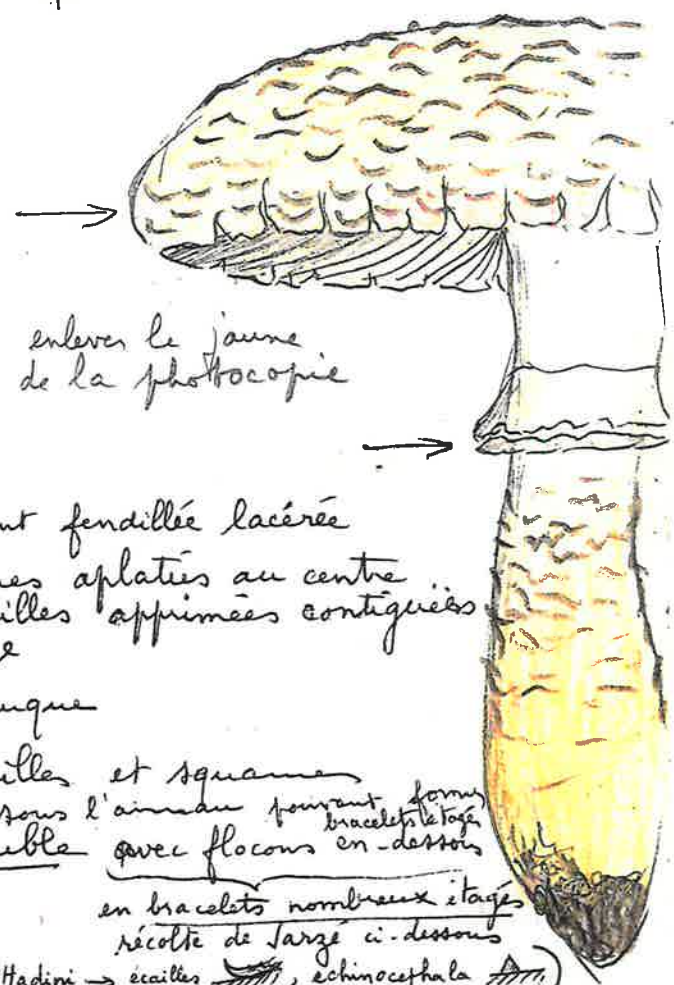 enlever le jaune
de la photocopie
nt fendillée lacérée
es aplaties au centre
illes apprimées contiguëes
e
uque
illes et squames
sous l'anneau pouvant former
bracelets étagés
uble avec flocons en-dessous
en bracelets nombreux étagés
récolte de Jarzé ci-dessous
Hadini → écailles , echinocephala )